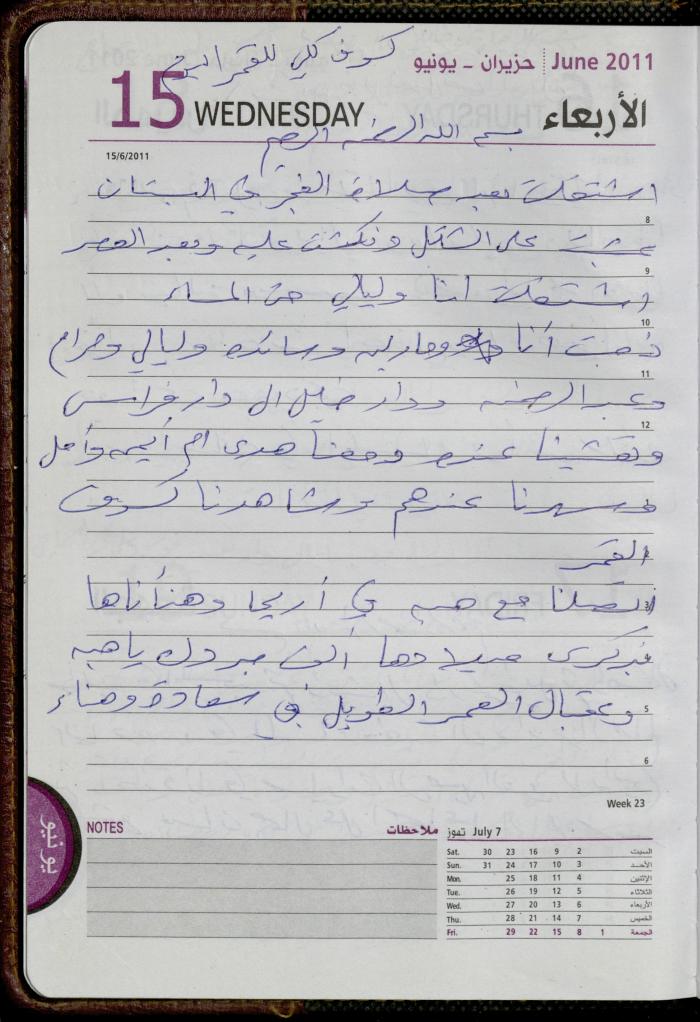 كسوف كلي للقمر اليوم
June 2011 حزيران - يونيو
15 WEDNESDAY الأربعاء
بسم الله الرحمن الرحيم
15/6/2011
اشتغلت بعد صلاة الفجر في البستان
8
على الشكل ونكشت عليه وبعد العصر
9
اشتغلت انا وليالي حتى المساء
10
ذهبت أنا وماريه وسائده وليالي ومرام
11
وعبد الرحمن ودار خليل الى دار فراس
12
وتعشينا عندهم ومعنا هدى ام أيهم وأمل
وسهرنا عندهم وشاهدنا كسوف
القمر
3
اتصلنا مع هبه في أريحا وهنأناها
4
بذكرى ميلادها ألف مبروك يا هبه
5
وعقبال العمر الطويل في سعادة وهناء
6
Week 23
يونيو
NOTES ملاحظات
July 7 تموز
Sat. 30 23 16 9 2 السبت
Sun. 31 24 17 10 3 الأحد
Mon. 25 18 11 4 الإثنين
Tue. 26 19 12 5 الثلاثاء
Wed. 27 20 13 6 الأربعاء
Thu. 28 21 14 7 الخميس
Fri. 29 22 15 8 1 الجمعة